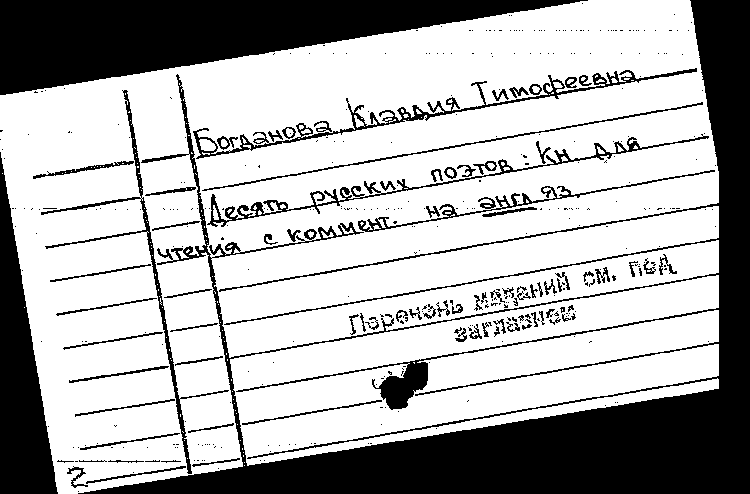 Богданова Клавдия Тимофеевна
Десять русских поэтов : Кн. для
чтения с коммент. на англ яз.
Перечень изданий см. под
заглавием
2